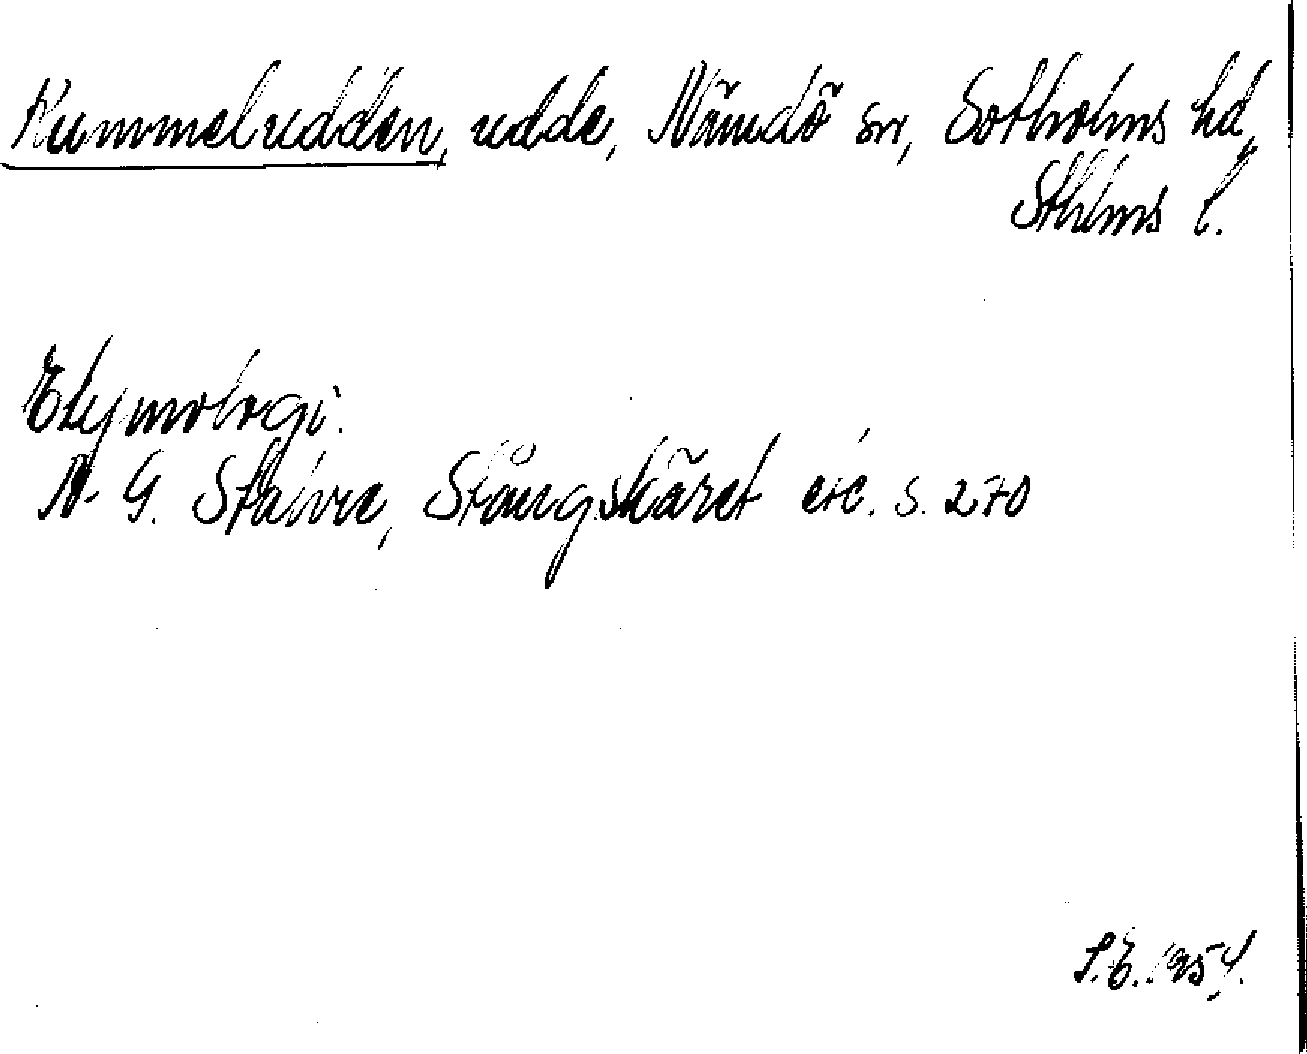 Kummeludden, udde, Nämdö sn, Sotholms hd,
Sthlms l.
Etymologi.
N. G. Stahre, Stångskäret etc. s. 270
S.E. 1954.